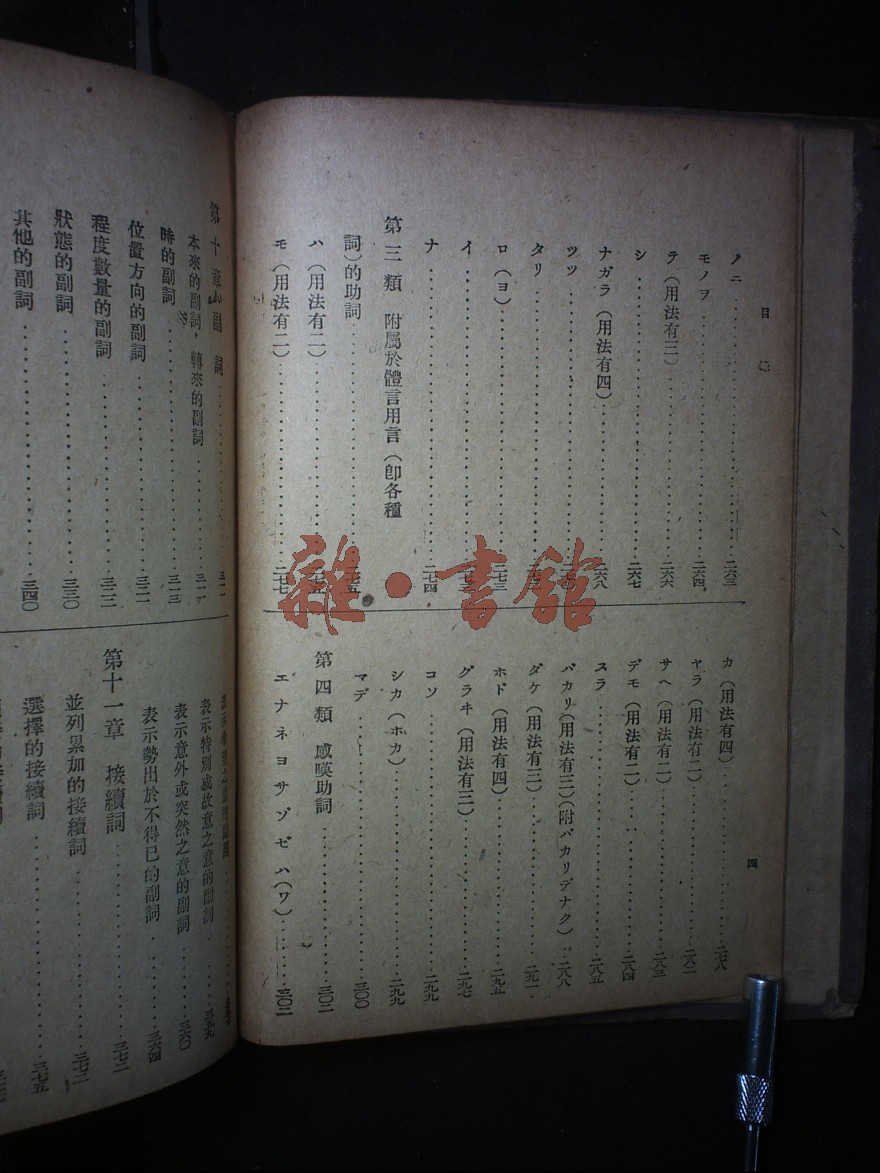 目
ノニ……二六三
モノヲ……二六四
テ(用法有三)……二六六
シ……二六七
ナガラ(用法有四)……二六八
ツツ
タリ
ロ(ヨ)……二七三
イ
ナ……二七四
第三類 附屬於體言用言(卽各種
詞)的助詞……二七五
ハ(用法有二)
モ(用法有二)……二七七
カ(用法有四)……二七八
ヤラ(用法有二)……二八二
サヘ(用法有二)……二八三
デモ(用法有二)……二八四
スラ……二八五
バカリ(用法有三)(附バカリデナク)……二八八
ダケ(用法有三)……二九二
ホド(用法有四)……二九五
グラヰ(用法有三)……二九七
コソ……二九九
シカ(ホカ)……二九九
マデ……三〇〇
第四類 感嘆助詞……三〇二
エナネヨサゾゼハ(ワ)……三〇二
四
第十章 副詞
本來的副詞,轉來的副詞
時的副詞……三一三
位置方向的副詞……三二一
程度數量的副詞……三二三
狀態的副詞……三三〇
其他的副詞……三四〇
表示特別或故意之意的副詞……三五九
表示意外或突然之意的副詞……三六〇
表示勢出於不得已的副詞……三六四
第十一章 接續詞……三七二
並列累加的接續詞……三七二
選擇的接續詞……三七五
雜·書館